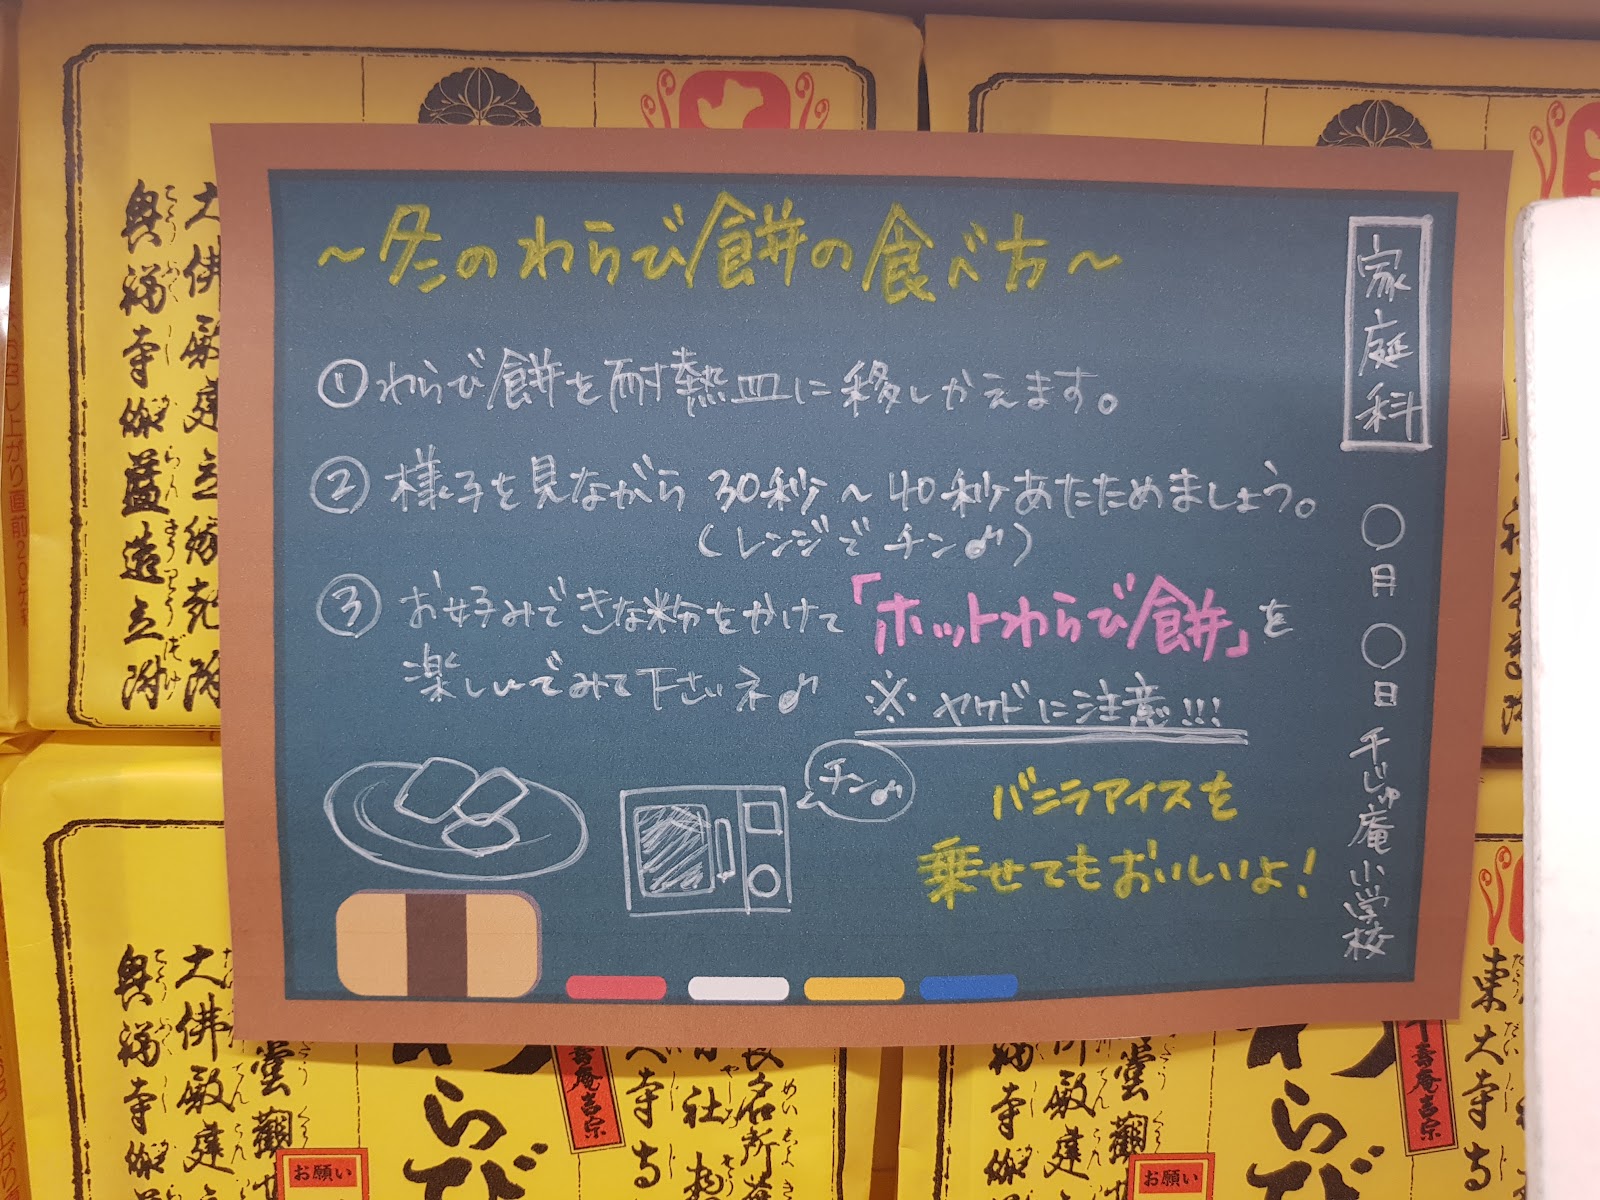 ~冬のわらび餅の食べ方~
①わらび餅を耐熱皿に移しかえます。
②様子を見ながら30秒~40秒あたためましょう。
(レンジでチン♪)
③お好みできな粉をかけて「ホットわらび餅」を
楽しんでみて下さいネ♪
※ヤケドに注意!!!
チン♪
バニラアイスを
乗せてもおいしいよ!
家庭科
〇月〇日 千じゅ庵小学校
興福寺伽藍造立附
興福寺伽
大佛殿建
わらび
千壽庵吉宗
お願い
お願い
東大寺